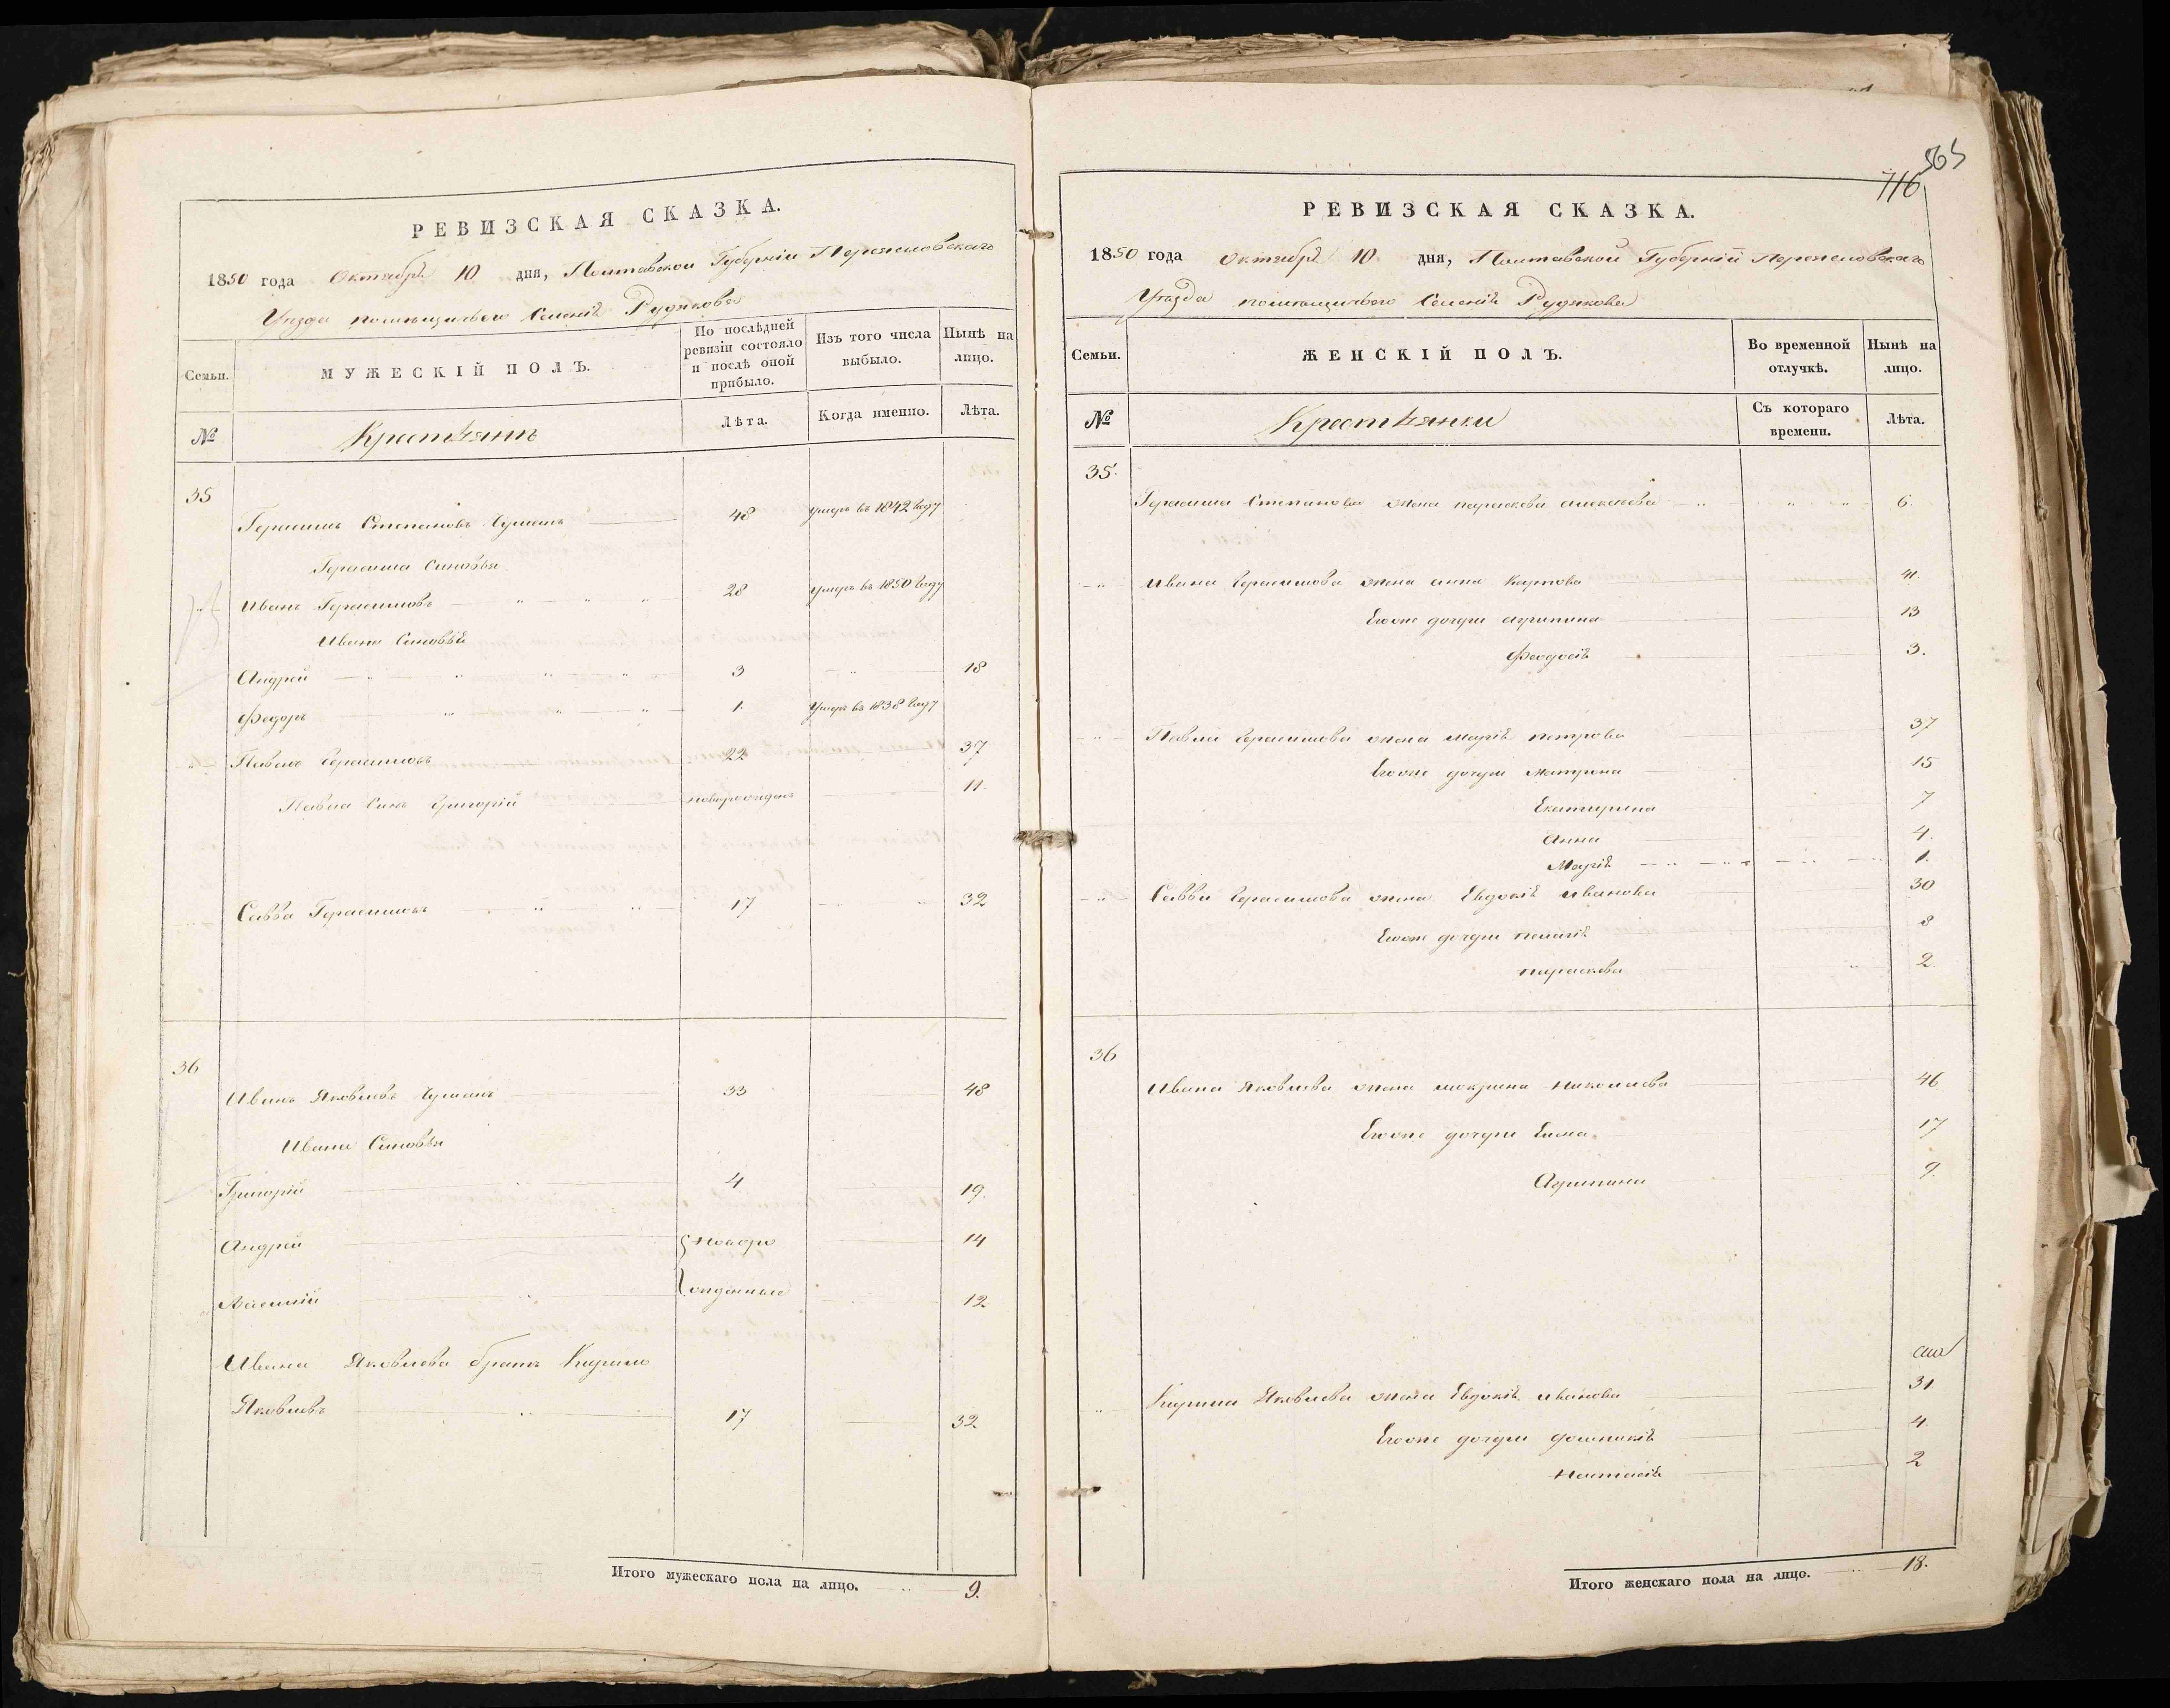 РЕВИЗСКАЯ СКАЗКА.
1850 года Октября 10 дня, Полтавской Губернiи Переясловскаго
Уезда помещичьего Селенiя Рудякова
Семьи.
МУЖЕСКIЙ ПОЛЪ.
По послѣдней ревизiи состояло и послѣ оной прибыло.
Изъ того числа выбыло.
Нынѣ на лицо.
№
Крестьянъ
Лѣта.
Когда именно.
Лѣта.
35
Герасимъ Степановъ 48 умеръ въ 1842 году
Герасима Синовья
Иванъ Герасимовъ 28 умеръ въ 1850 году
Ивана Синовья
Андрей 3 18
Федоръ 1. умеръ въ 1838 году
Павелъ Герасимовъ 22 37
Павла Синъ Григорiй новорожденъ 11.
Савва Герасимовъ 17 32
36
Иванъ Яковлевъ 33 48
Ивана Синовья
Григорiй 4 19.
Андрей новоро 14
жденные 12
Ивана Яковлева братъ Кирило
Яковлевъ 17 32
Итого мужескаго пола на лицо. 9.
565
716
РЕВИЗСКАЯ СКАЗКА.
1850 года Октября 10 дня, Полтавской Губернiй Переясловскаго
Уезда помещичьего Селенiя Рудякова
Семьи.
ЖЕНСКIЙ ПОЛЪ.
Во временной отлучкѣ.
Нынѣ на лицо.
№
Крестьянки
Съ котораго времени.
Лѣта.
35.
Герасима Степанова жена параскева алексеева 6.
Ивана Герасимова жена анна Карпова 41.
Егоже дочери агрипина 13
Феодосiя 3.
Павла Герасимова жена Марiя петрова 37
Егоже дочери Матрона 15
Екатерина 7
Анна 4.
Марiя 1.
Саввы Герасимова жена Евдокiя иванова 30
Егоже дочери пелагiя 8
параскева 2.
36
Ивана Яковлева жена мокрина николаева 46
Егоже дочери Елена 17
Агрипина 9.
Кирила Яковлева жена Евдокiя иванова 31.
Егоже дочери домникiя 4.
Настасiя 2
Итого женскаго пола на лицо. 18.